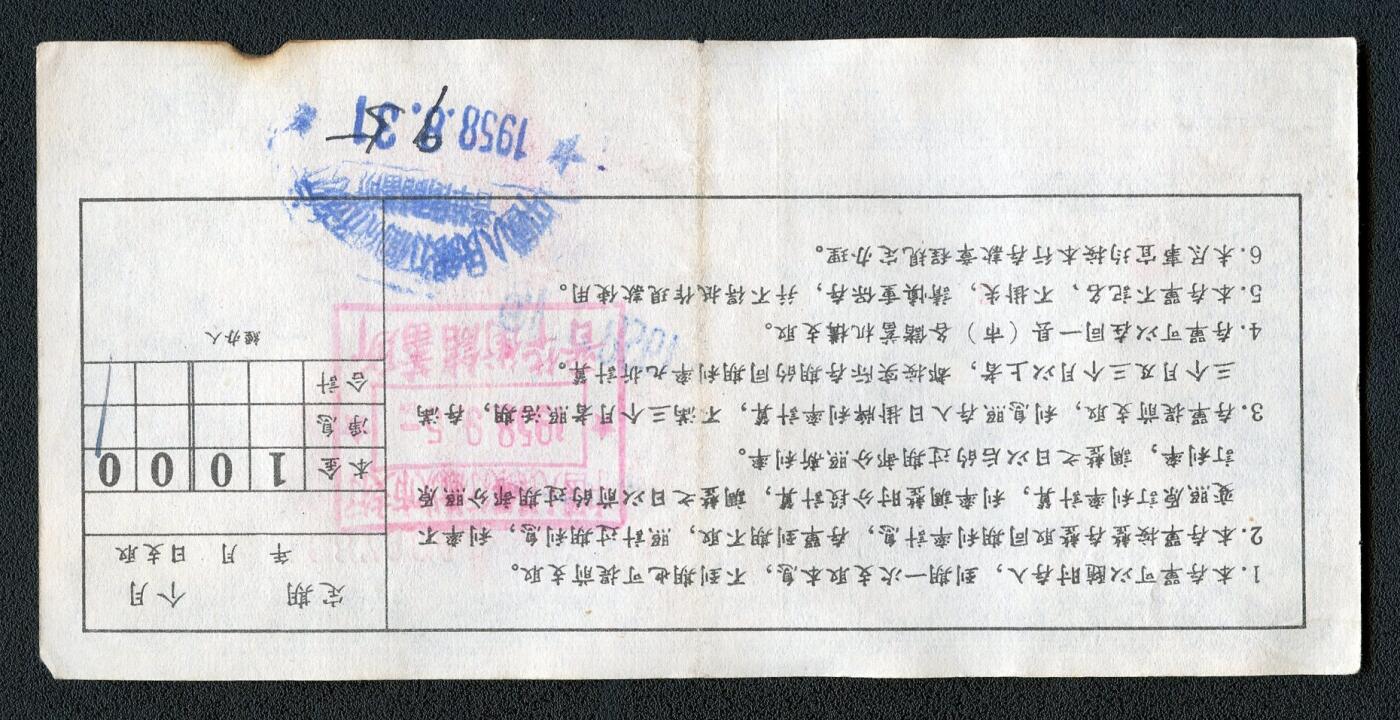 1.本存單可以随时存入，到期一次支取本息，不到期也可提前支取。
2.本存單按整存整取同期利率計息，存單到期不取，照計过期利息，利率不
变照原訂利率計算，利率調整时分段計算，調整之日以前的过期部分照原
訂利率，調整之日以后的过期部分照新利率。
3.存單提前支取，利息照存入日掛牌利率計算，不滿三个月者照活期，存滿
三个月及三个月以上者，都按实际存期的同期利率九折計算。
4.存單可以在同一县（市）各儲蓄机構支取。
5.本存單不記名、不掛失，請慎重保存，并不得抵作現款使用。
6.未尽事宜均按本行存款章程規定办理。
定期 个月
年 月 日支取
本金 1 0 0 0
淨息
合計
經办人
1958.9.5
儲蓄所
中国人民銀行
儲蓄所
1958.8.31